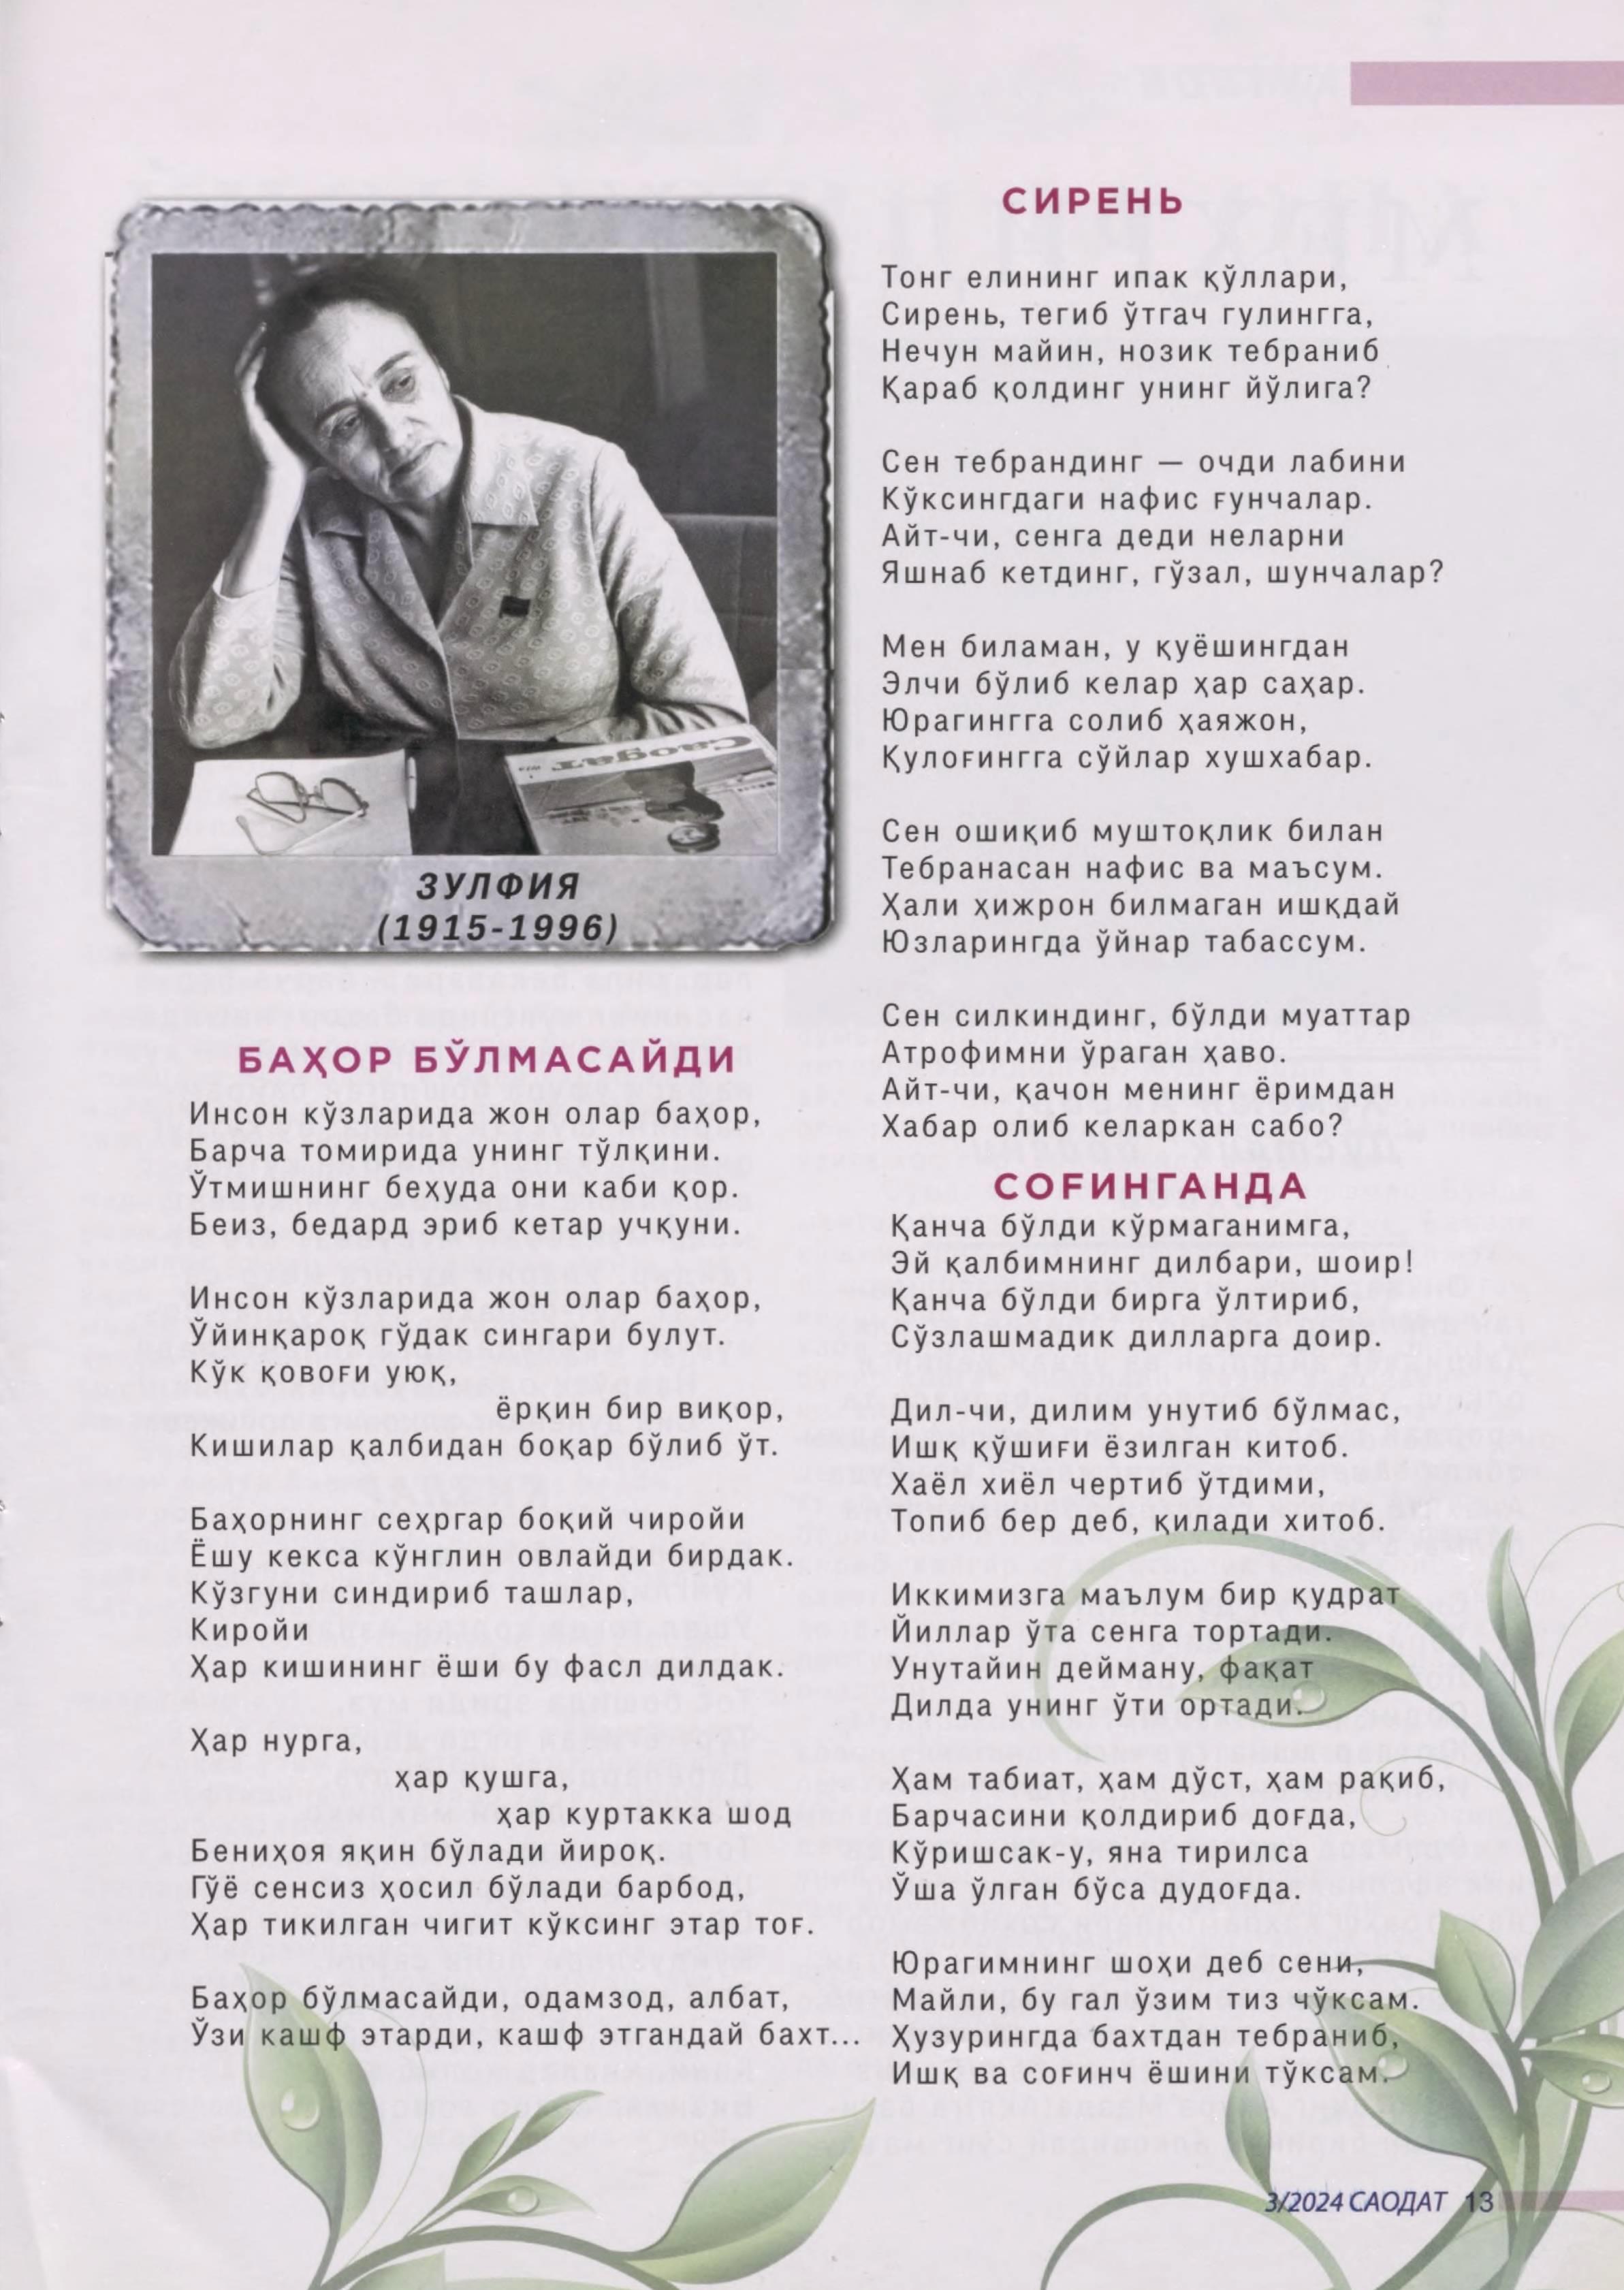 Саодат
ЗУЛФИЯ
(1915-1996)
БАҲОР БЎЛМАСАЙДИ
Инсон кўзларида жон олар баҳор,
Барча томирида унинг тўлқини.
Ўтмишнинг беҳуда они каби қор.
Беиз, бедард эриб кетар учқуни.
Инсон кўзларида жон олар баҳор,
Ўйинқароқ гўдак сингари булут.
Кўк қовоғи уюқ,
ёрқин бир виқор,
Кишилар қалбидан боқар бўлиб ўт.
Баҳорнинг сеҳргар боқий чиройи
Ёшу кекса кўнглин овлайди бирдак.
Кўзгуни синдириб ташлар,
Киройи
Ҳар кишининг ёши бу фасл дилдак.
Ҳар нурга,
ҳар қушга,
ҳар куртакка шод
Бениҳоя яқин бўлади йироқ.
Гўё сенсиз ҳосил бўлади барбод,
Ҳар тикилган чигит кўксинг этар тоғ.
Баҳор бўлмасайди, одамзод, албат,
Ўзи кашф этарди, кашф этгандай бахт...
СИРЕНЬ
Тонг елининг ипак қўллари,
Сирень, тегиб ўтгач гулингга,
Нечун майин, нозик тебраниб
Қараб қолдинг унинг йўлига?
Сен тебрандинг — очди лабини
Кўксингдаги нафис ғунчалар.
Айт-чи, сенга деди неларни
Яшнаб кетдинг, гўзал, шунчалар?
Мен биламан, у қуёшингдан
Элчи бўлиб келар ҳар саҳар.
Юрагингга солиб ҳаяжон,
Қулоғингга сўйлар хушхабар.
Сен ошиқиб муштоқлик билан
Тебранасан нафис ва маъсум.
Ҳали ҳижрон билмаган ишқдай
Юзларингда ўйнар табассум.
Сен силкиндинг, бўлди муаттар
Атрофимни ўраган ҳаво.
Айт-чи, қачон менинг ёримдан
Хабар олиб келаркан сабо?
СОҒИНГАНДА
Қанча бўлди кўрмаганимга,
Эй қалбимнинг дилбари, шоир!
Қанча бўлди бирга ўлтириб,
Сўзлашмадик дилларга доир.
Дил-чи, дилим унутиб бўлмас,
Ишқ қўшиғи ёзилган китоб.
Хаёл хиёл чертиб ўтдими,
Топиб бер деб, қилади хитоб.
Иккимизга маълум бир қудрат
Йиллар ўта сенга тортади.
Унутайин дейману, фақат
Дилда унинг ўти ортади.
Ҳам табиат, ҳам дўст, ҳам рақиб,
Барчасини қолдириб доғда,
Кўришсак-у, яна тирилса
Ўша ўлган бўса дудоғда.
Юрагимнинг шоҳи деб сени,
Майли, бу гал ўзим тиз чўксам.
Ҳузурингда бахтдан тебраниб,
Ишқ ва соғинч ёшини тўксам.
3/2024 САОДАТ 13